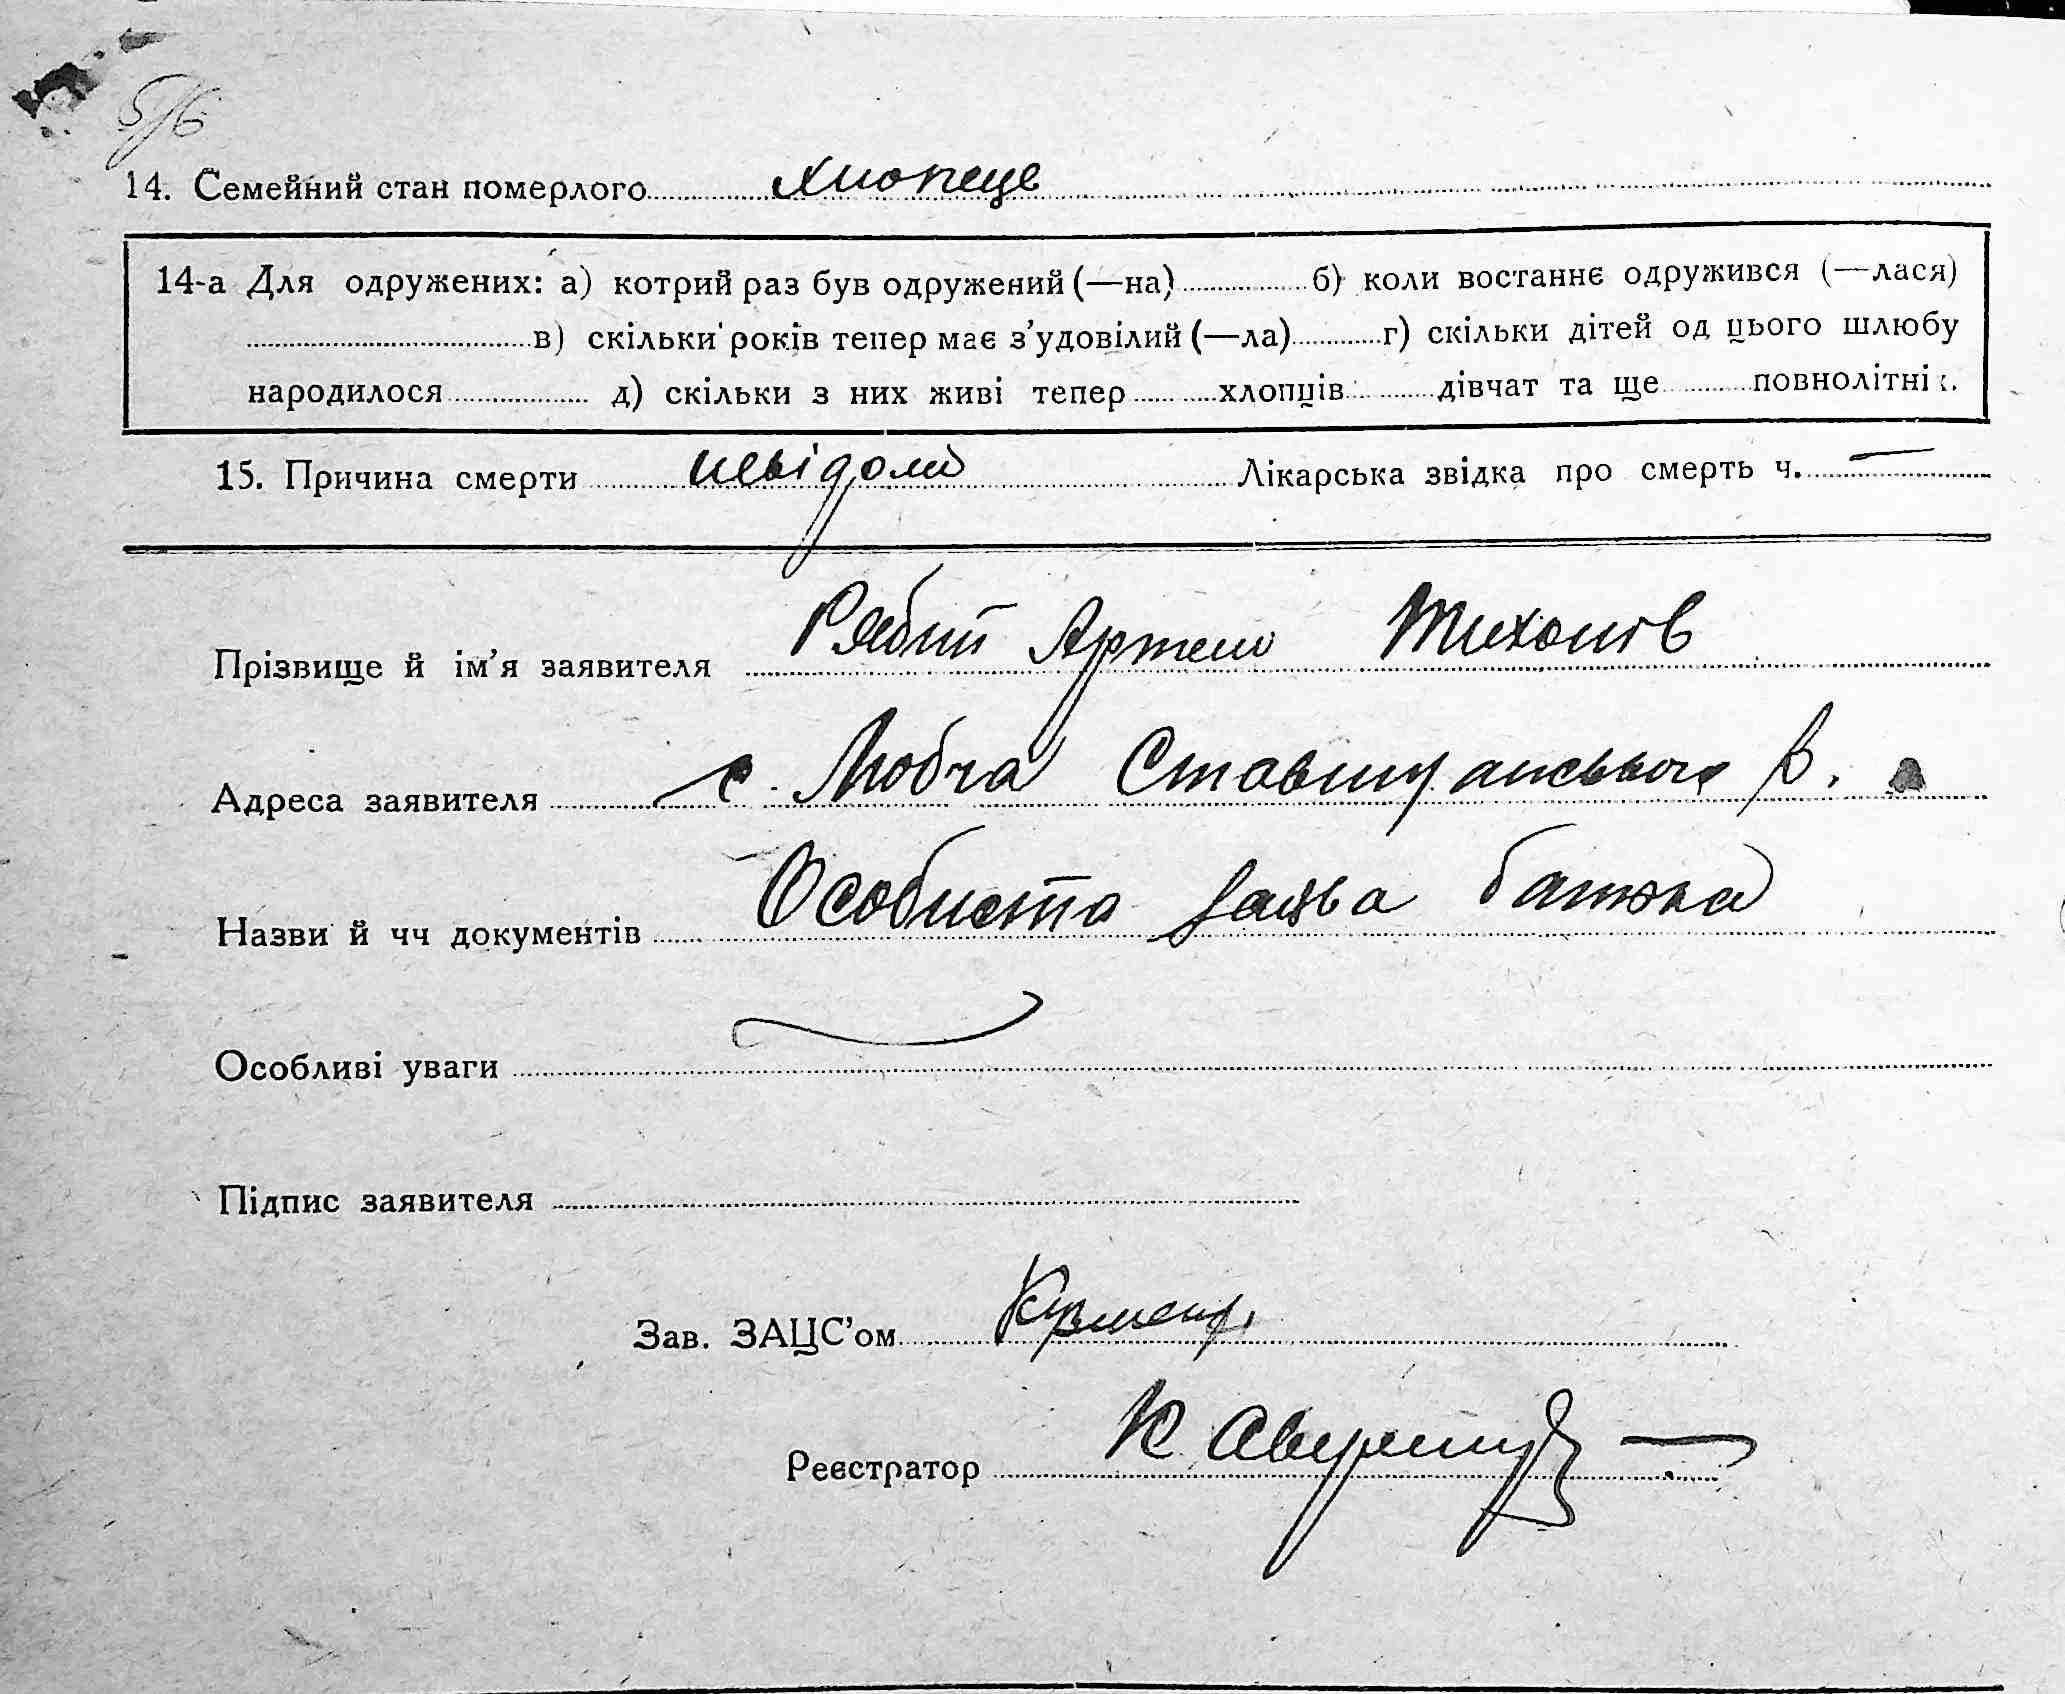 14. Семейний стан померлого хлопець
14-а Для одружених: а) котрий раз був одружений (—на) б) коли востаннє одружився (—лася)
в) скільки років тепер має з’удовілий (—ла) г) скільки дітей од цього шлюбу
народилося д) скільки з них живі тепер хлопців дівчат та ще повнолітніх.
15. Причина смерти невідома Лікарська звідка про смерть ч. —
Прізвище й ім’я заявителя Рябий Артем Тихонів
Адреса заявителя с. Любча Ставищанського р.
Назви й чч документів Особиста заява батька
Особливі уваги
Підпис заявителя
Зав. ЗАЦС’ом
Реєстратор К